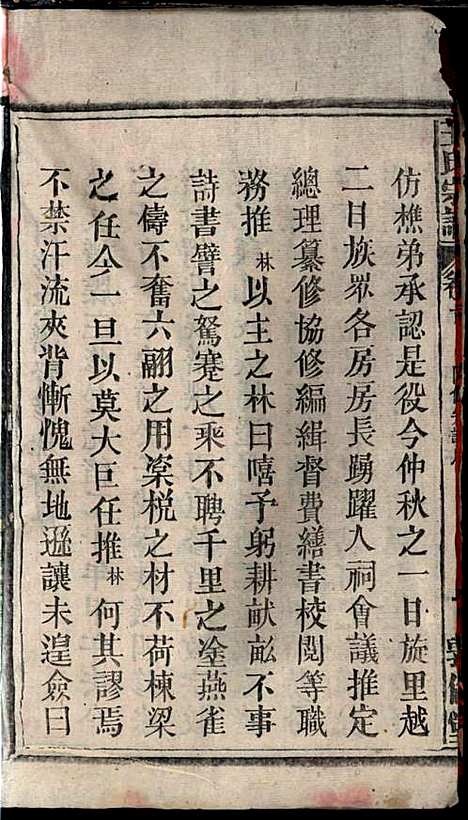 氏宗譜
仿樵弟承認是役今仲秋之一日旋里越
二日族眾各房房長踴躍入祠會議推定
總理纂修協修編緝督費繕書校閱等職
務推林以主之林曰嘻予躬耕畎畝不事
詩書譬之駑蹇之乘不聘千里之塗燕雀
之儔不奮六翮之用楶梲之材不荷棟梁
之任今一旦以莫大巨任推林何其謬焉
不禁汗流夾背慚愧無地遜讓未遑僉曰